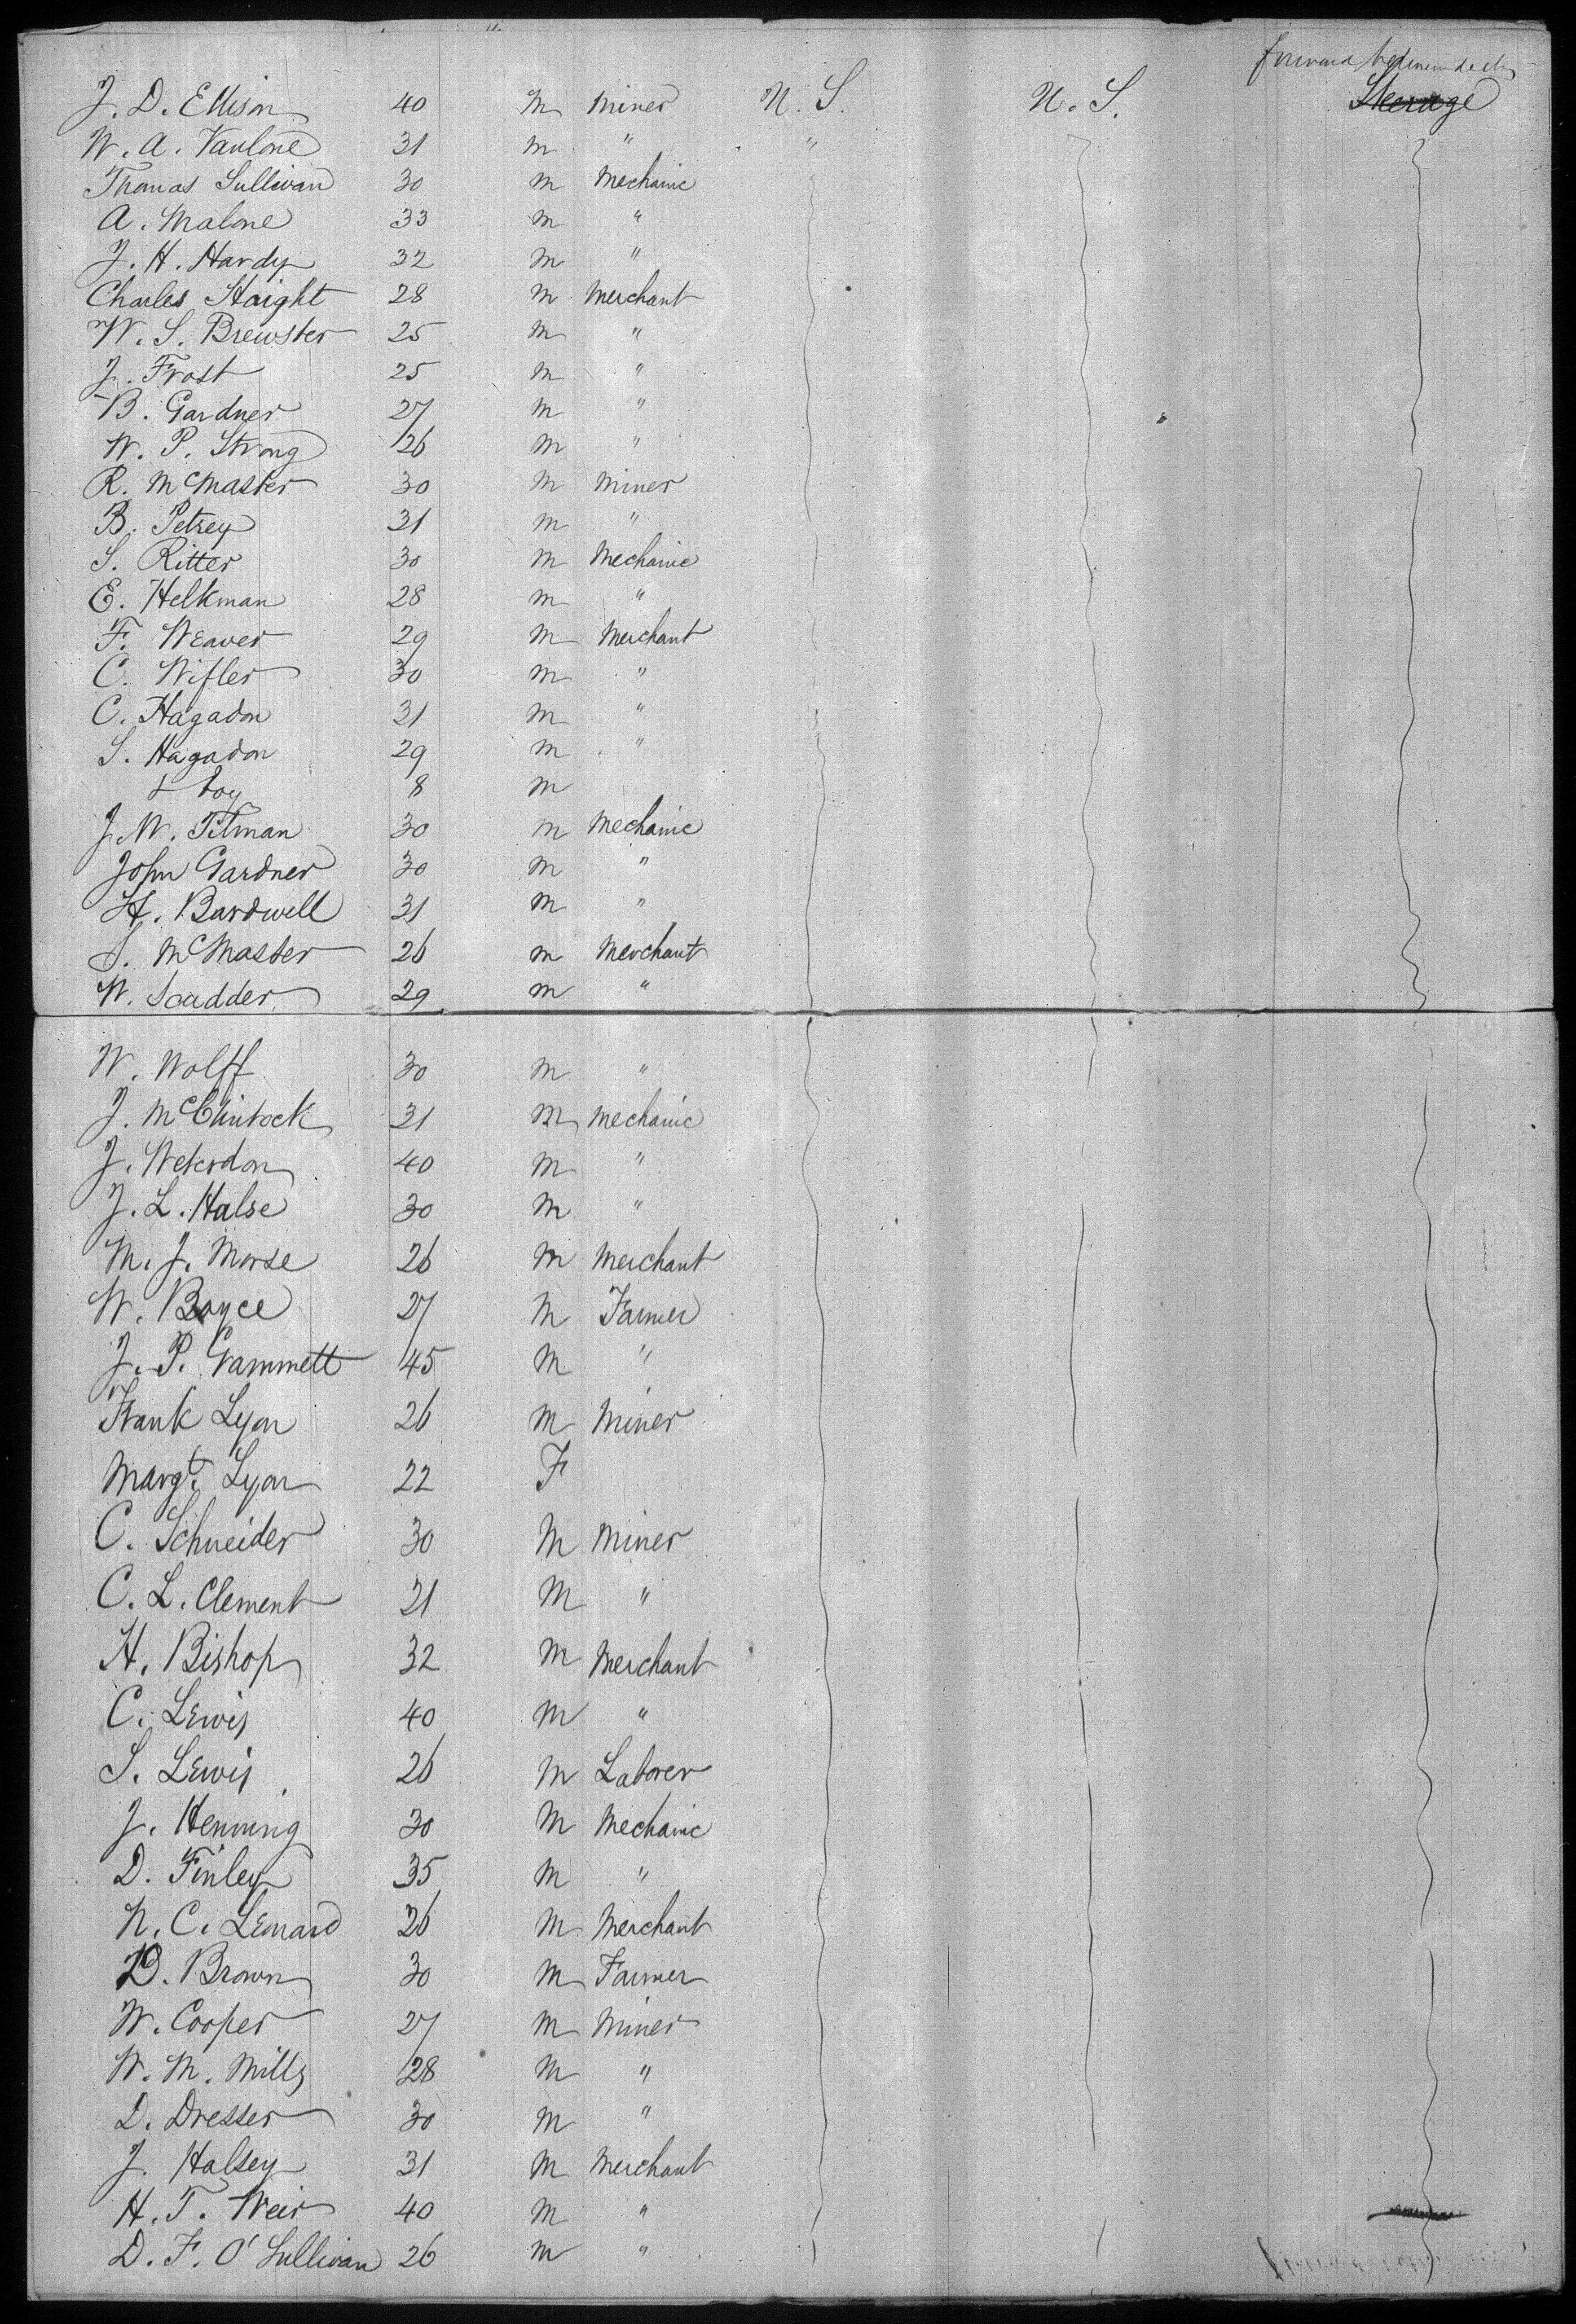 forward between decks
J. D. Ellison 40 M Miner U. S. U. S. Steerage
W. A. Vanlone 31 M " "
Thomas Sullivan 30 M Mechanic
A. Malone 33 M "
J. H. Hardy 32 M "
Charles Haight 28 M Merchant
W. S. Brewster 25 M "
J. Frost 25 M "
B. Gardner 27 M "
W. P. Strong 26 M "
R. McMaster 30 M Miner
B. Petrey 31 M "
S. Ritter 30 M Mechanic
E. Helkman 28 M "
F. Weaver 29 M Merchant
C. Wifler 30 M "
C. Hagadon 31 M "
S. Hagadon 29 M "
& boy 8 M
J. W. Tilman 30 M Mechanic
John Gardner 30 M "
H. Bardwell 31 M "
S. McMaster 26 M Merchant
W. Scudder 29 M "
W. Wolff 30 M "
J. McClintock 31 M Mechanic
J. 40 M "
J. L. Halse 30 M "
M. J. Morse 26 M Merchant
W. Boyce 27 M Farmer
J. P. Gammett 45 M "
Frank Lyon 26 M Miner
Margt. Lyon 22 F
C. Schneider 30 M Miner
C. L. Clement 21 M "
H. Bishop 32 M Merchant
C. Lewis 40 M "
S. Lewis 26 M Laborer
J. Henning 30 M Mechanic
D. Finley 35 M "
N. C. Leonard 26 M Merchant
D. Brown 30 M Farmer
W. Cooper 27 M Miner
W. M. Mills 28 M "
D. Dresser 30 M "
J. Halsey 31 M Merchant
H. T. Weir 40 M "
D. F. O'Sullivan 26 M "